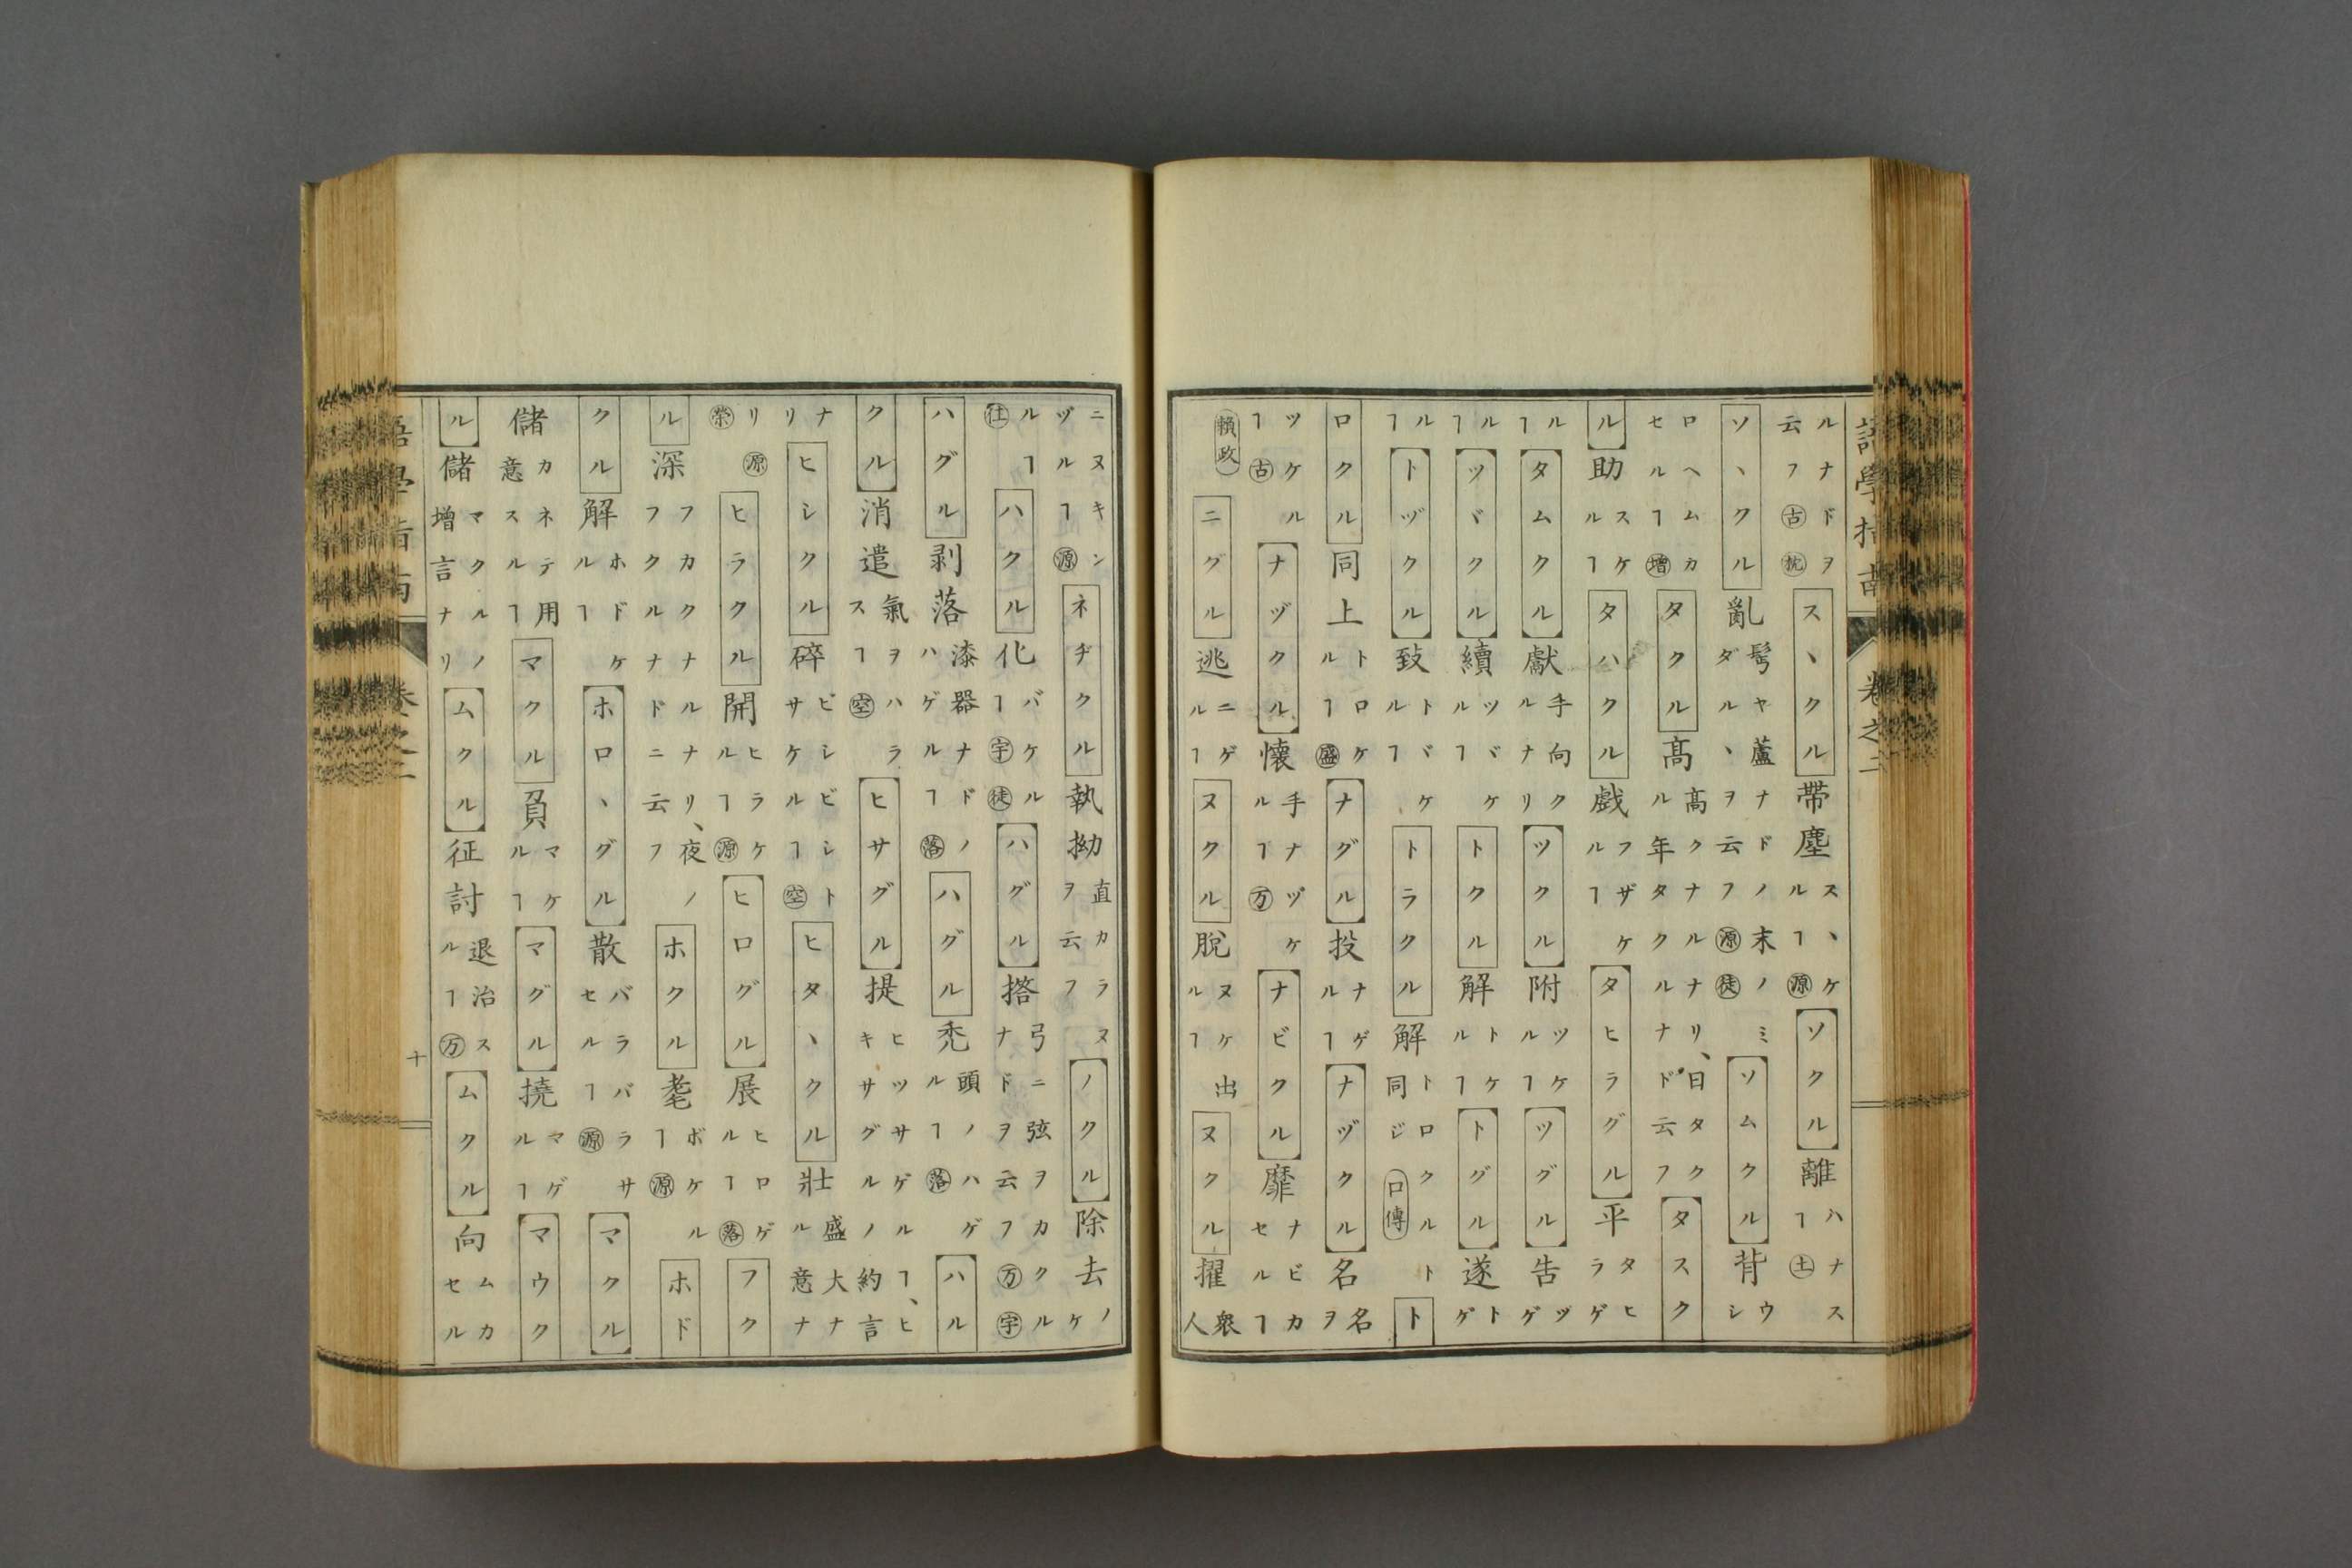 語學指南 卷之二
ルナドヲ云フ古枕 スヽクル 帶塵 スヽケルヿ源 ソクル 離 ハナスヿ土
ソヽクル 亂 髩ヤ蘆ナドノ末ノミダルヽヲ云フ源徒 ソムクル 背 ウシ
ロヘムカセルヿ增 タクル 髙 髙クナルナリ、日タクル年タクルナド云フ タスク
ル 助 スケルヿ タハクル 戲 フザケルヿ タヒラグル 平 タヒラゲ
ルヿ タムクル 獻 手向クルナリ ツクル 附 ツケルヿ ツグル 告 ツゲ
ルヿ ツヾクル 續 ツヾケルヿ トクル 解 トケルヿ トグル 遂 トゲ
ルヿ トヅクル 致 トヾケルヿ トラクル 解 トロクルト同ジ 口傳 ト
ロクル 同上 トロケルヿ盛 ナグル 投 ナゲルヿ ナヅクル 名 名ヲ
ツケルヿ古 ナヅクル 懷 手ナヅケルヿ万 ナビクル 靡 ナビカセルヿ
賴政 ニグル 逃 ニゲルヿ ヌクル 脫 ヌケ出ルヿ ヌクル 擢 衆人
ニヌキンヅルヿ源 ネヂクル 執拗 直カラヌヲ云フ ノクル 除去 ノケ
ルヿ仕 ハクル 化 バケルヿ宇徒 ハグル 弓ニ弦ヲカクルナドヲ云フ万宇
ハグル 剥落 漆器ナドノハゲルヿ落 ハグル 禿 頭ノハゲルヿ落 ハル
クル 消遣 氣ヲハラスヿ空 ヒサグル 提 ヒツサゲルヿ、ヒキサグルノ約言
ナリ ヒシクル 碎 ビシビシトサケルヿ空 ヒタヽクル 壯 盛大ナル意ナ
リ源榮 ヒラクル 開 ヒラケルヿ源 ヒログル 展 ヒロゲルヿ落 フク
ル 深 フカクナルナリ、夜ノフクルナドニ云フ ホクル 耄 ボケルヿ源 ホド
クル 解 ホドケルヿ ホロヽグル 散 バラバラサセルヿ源 マクル
儲 カネテ用意スルヿ マクル 負 マケルヿ マグル 撓 マゲルヿ マウク
ル 儲 マクルノ增言ナリ ムクル 征討 退治スルヿ万 ムクル 向 ムカセル
語學指南 卷之二 十